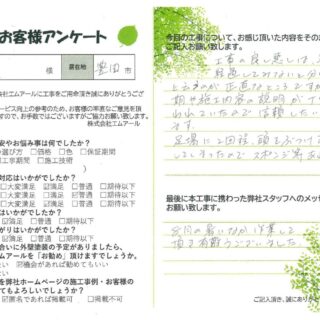 お客様アンケート
様
居住地
豊田市
会社エムアールに工事をご用命頂き誠にありがとうござ
ービス向上の参考のため、お客様の率直なご意見を頂
ますので、お手数ではございますがご協力お願い致します。
株式会社エムアール
安やお悩み事は何でしたか?
の選び方 □価格 □色 □保証期間
工事期間 □施工技術
対応はいかがでしたか?
□大変満足 ☑満足 □普通 □期待以下
□大変満足 ☑満足 □普通 □期待以下
□大変満足 □満足 ☑普通 □期待以下
はいかがでしたか?
足 □満足 ☑普通 □期待以下
がりはいかがでしたか?
足 ☑満足 □普通 □期待以下
合いに外壁塗装の予定がありましたら、
エムアールを「お勧め」頂けますでしょうか。
い ☑機会があれば勧めてもいい
を弊社ホームページの施工事例・お客様の
てもよろしいでしょうか?
☑匿名であれば掲載可 □掲載不可
今回の工事について、お感じ頂いた内容をその
ご記入お願い致します。
工事の良し悪しは、
経過してみないと分
期や施工内容の説明が
足場に2回程、頭をぶつけて
しまったのでスポンジ
最後に本工事に携わった弊社スタッフへのメッ
お願い致します。
頂き有難うございました。
ご記入頂き、誠にありがと